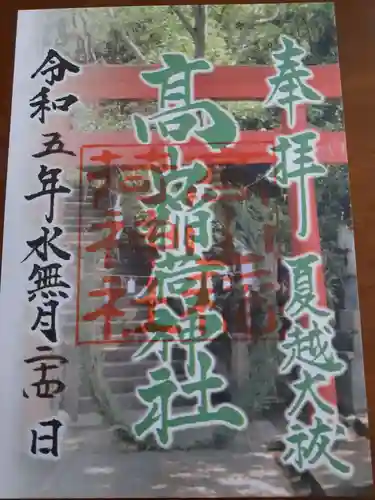 奉拝 夏越大祓
高山稲荷神社
令和五年水無月二十四日